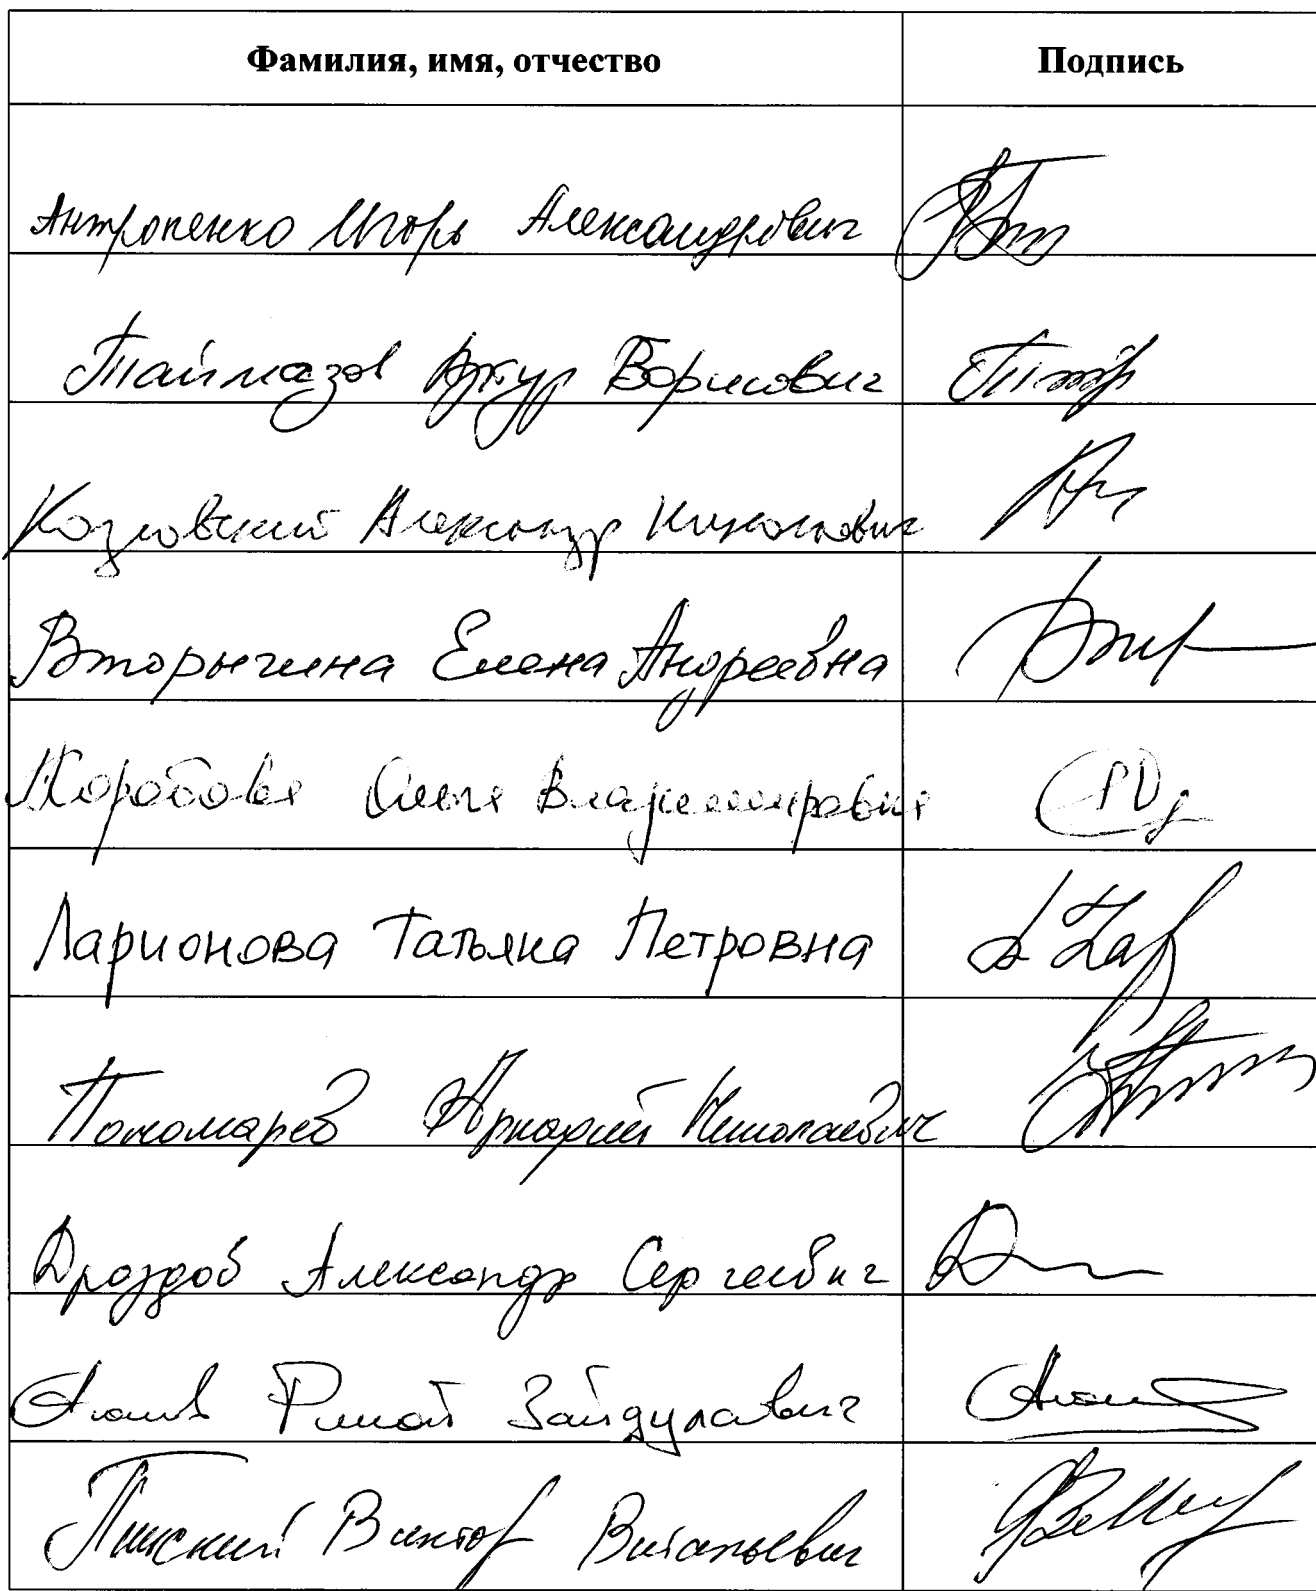 Фамилия, имя, отчество Подпись
Антропенко Игорь Александрович
Таймазов Артур Борисович
Козловский Александр Николаевич
Вторыгина Елена Андреевна
Коробова Ольга Владимировна
Ларионова Татьяна Петровна
Пономарев Аркадий Николаевич
Дроздов Александр Сергеевич
Аюпов Ринат Зайдулавич
Пинский Виктор Витальевич